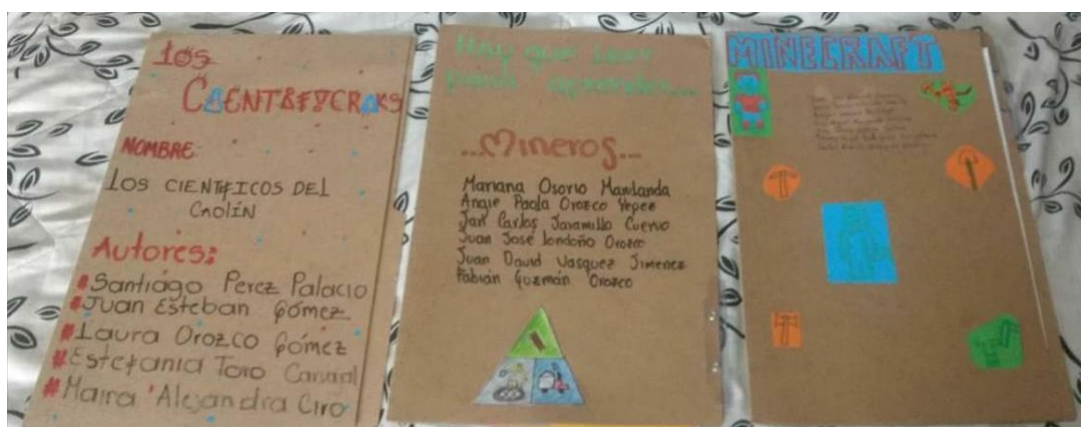 LOS
CIENTIFICRAKS
NOMBRE:
LOS CIENTIFICOS DEL
CAOLÍN
Autores:
#Santiago Perez Palacio
#Juan Esteban Gómez
#Laura Orozco Gómez
#Estefania Toro Carvajal
#Maira Alejandra Ciro
Hay que leer
para aprender...
...Mineros...
Mariana Osorio Marulanda
Angie Paola Orozco Yepes
Jan Carlos Jaramillo Cuervo
Juan José londoño Orozco
Juan David Vasquez Jimenez
Fabian Guzmán Orozco
MINECRAFT